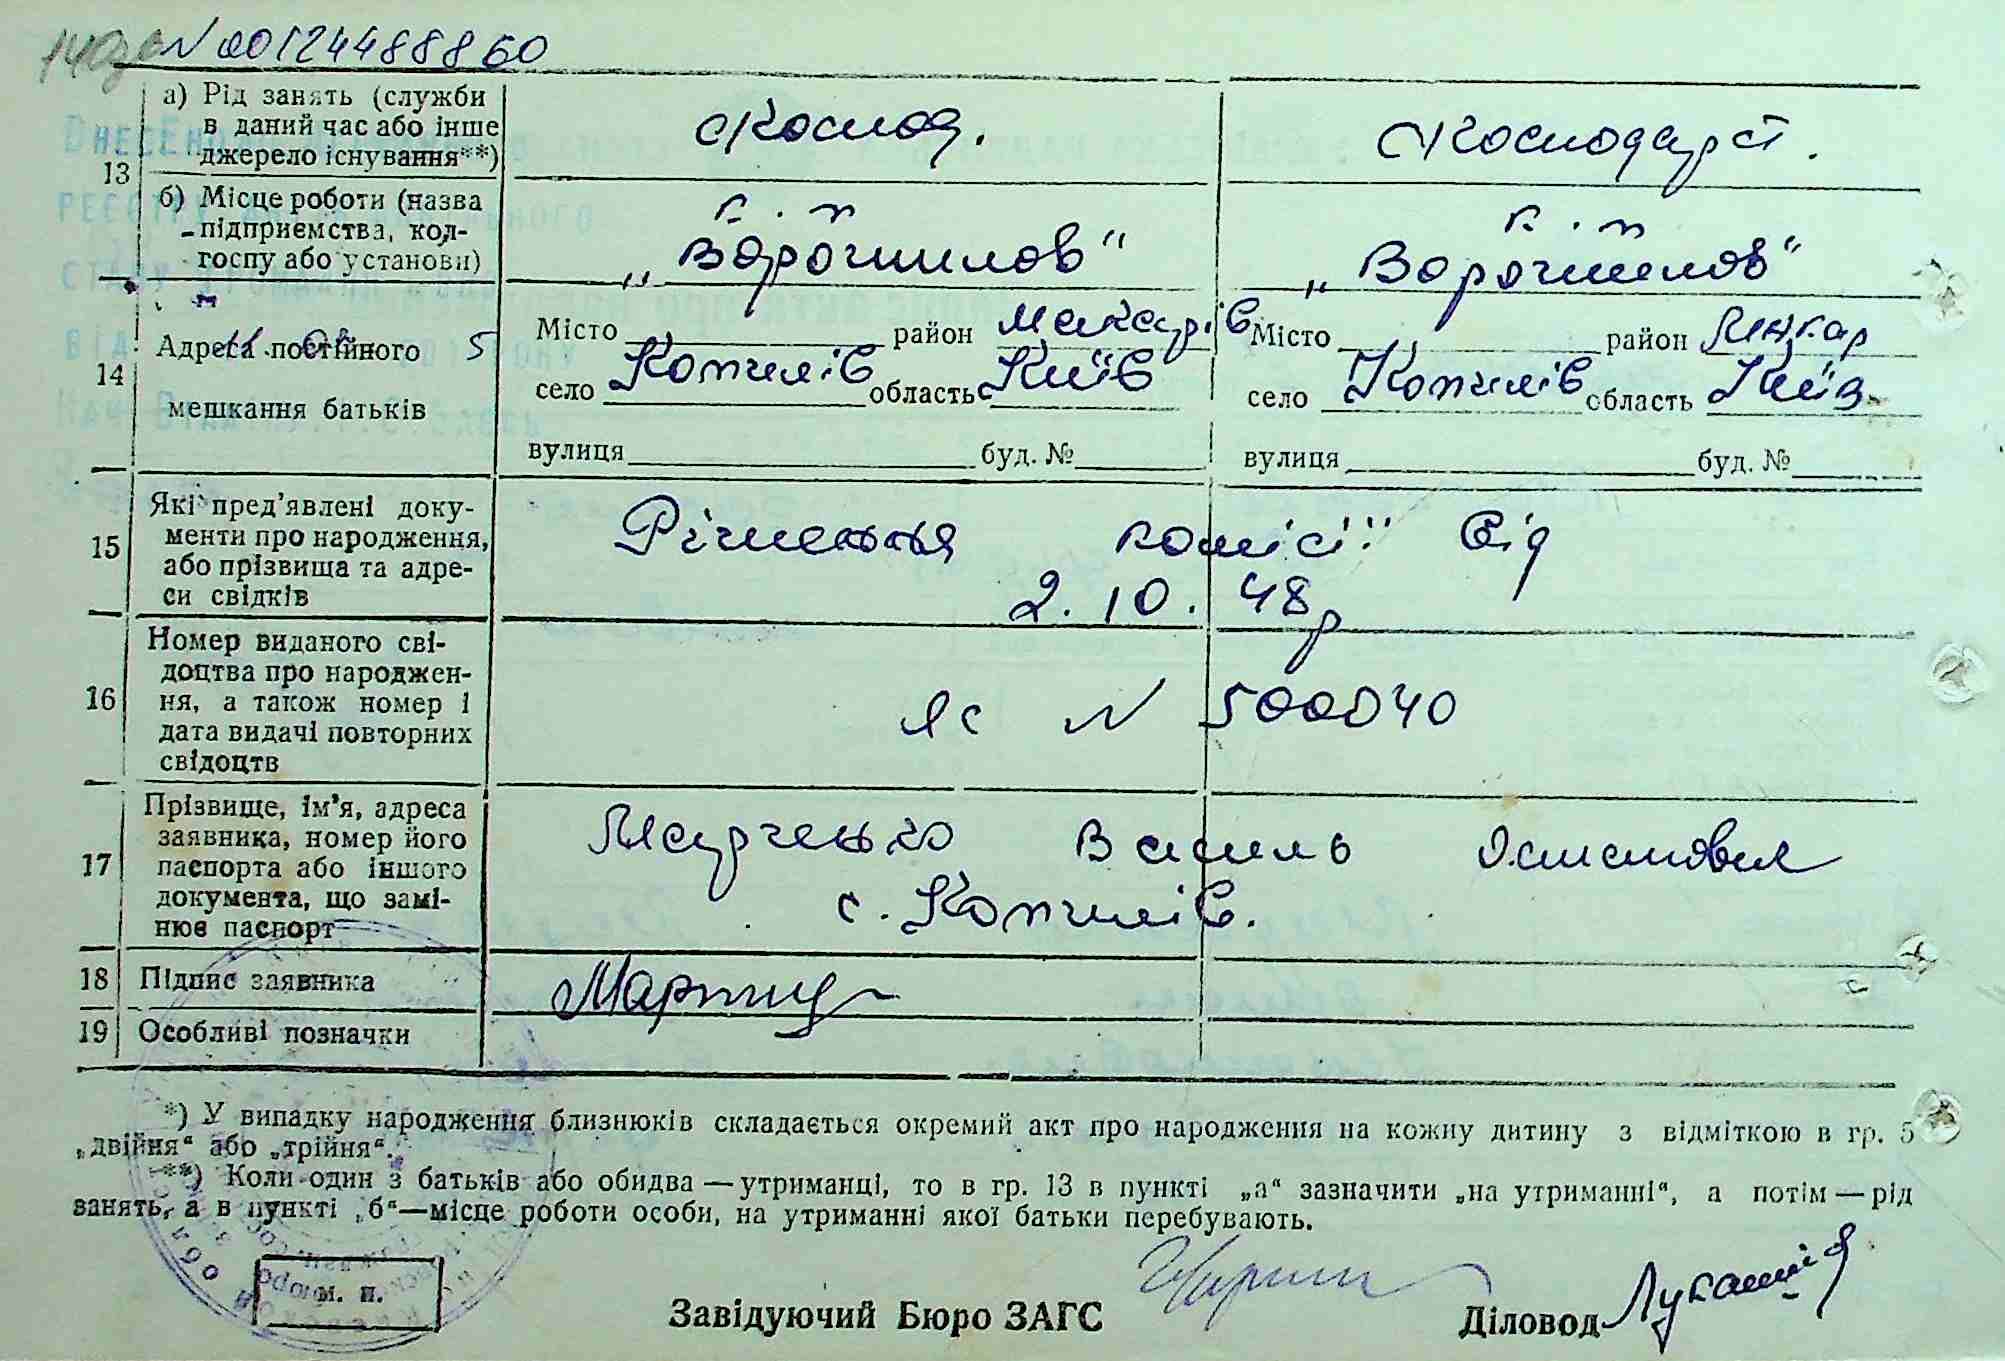 N 00124488860
13
а) Рід занять (служби в даний час або інше джерело існування**)
Господ.
Господарст.
б) Місце роботи (назва підприємства, колгоспу або установи)
к. г.
„Ворошилов“
к. г.
„Ворошилов“
14
Адреса постійного мешкання батьків
Місто район Макарів
село Копилів область Київ
вулиця буд. №
Місто район Макар
село Копилів область Київ
вулиця буд. №
15
Які пред’явлені документи про народження, або прізвища та адреси свідків
Рішення комісії від
2. 10. 48р
16
Номер виданого свідоцтва про народження, а також номер і дата видачі повторних свідоцтв
ЯС N 500040
17
Прізвище, ім’я, адреса заявника, номер його паспорта або іншого документа, що замінює паспорт
Василь
с. Копилів.
18 Підпис заявника
19 Особливі позначки
*) У випадку народження близнюків складається окремий акт про народження на кожну дитину з відміткою в гр. 5
„двійня“ або „трійня“.
**) Коли один з батьків або обидва — утриманці, то в гр. 13 в пункті „а“ зазначити „на утриманні“, а потім — рід
занять, а в пункті „б“—місце роботи особи, на утриманні якої батьки перебувають.
м. п.
Завідуючий Бюро ЗАГС
Діловод